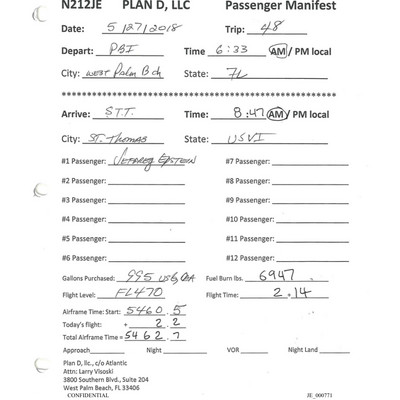 N212JE PLAN D, LLC Passenger Manifest
Date: 5/27/2018 Trip: 48
Depart: PBI Time 6:33 AM / PM local
City: West Palm Bch State: FL
Arrive: STT. Time: 8:47 AM / PM local
City: ST. Thomas State: USVI
#1 Passenger: Jeffrey Epstein #7 Passenger:
#2 Passenger: #8 Passenger:
#3 Passenger: #9 Passenger:
#4 Passenger: #10 Passenger:
#5 Passenger: #11 Passenger:
#6 Passenger: #12 Passenger:
Gallons Purchased: 995 USG, Fuel Burn lbs. 6947
Flight Level: FL470 Flight Time: 2.14
Airframe Time: Start: 5460.5
Today's flight: + 2.2
Total Airframe Time = 5462.7
Approach Night VOR Night Land
Plan D, llc., c/o Atlantic
Attn: Larry Visoski
3800 Southern Blvd., Suite 204
West Palm Beach, FL 33406
CONFIDENTIAL JE_000771